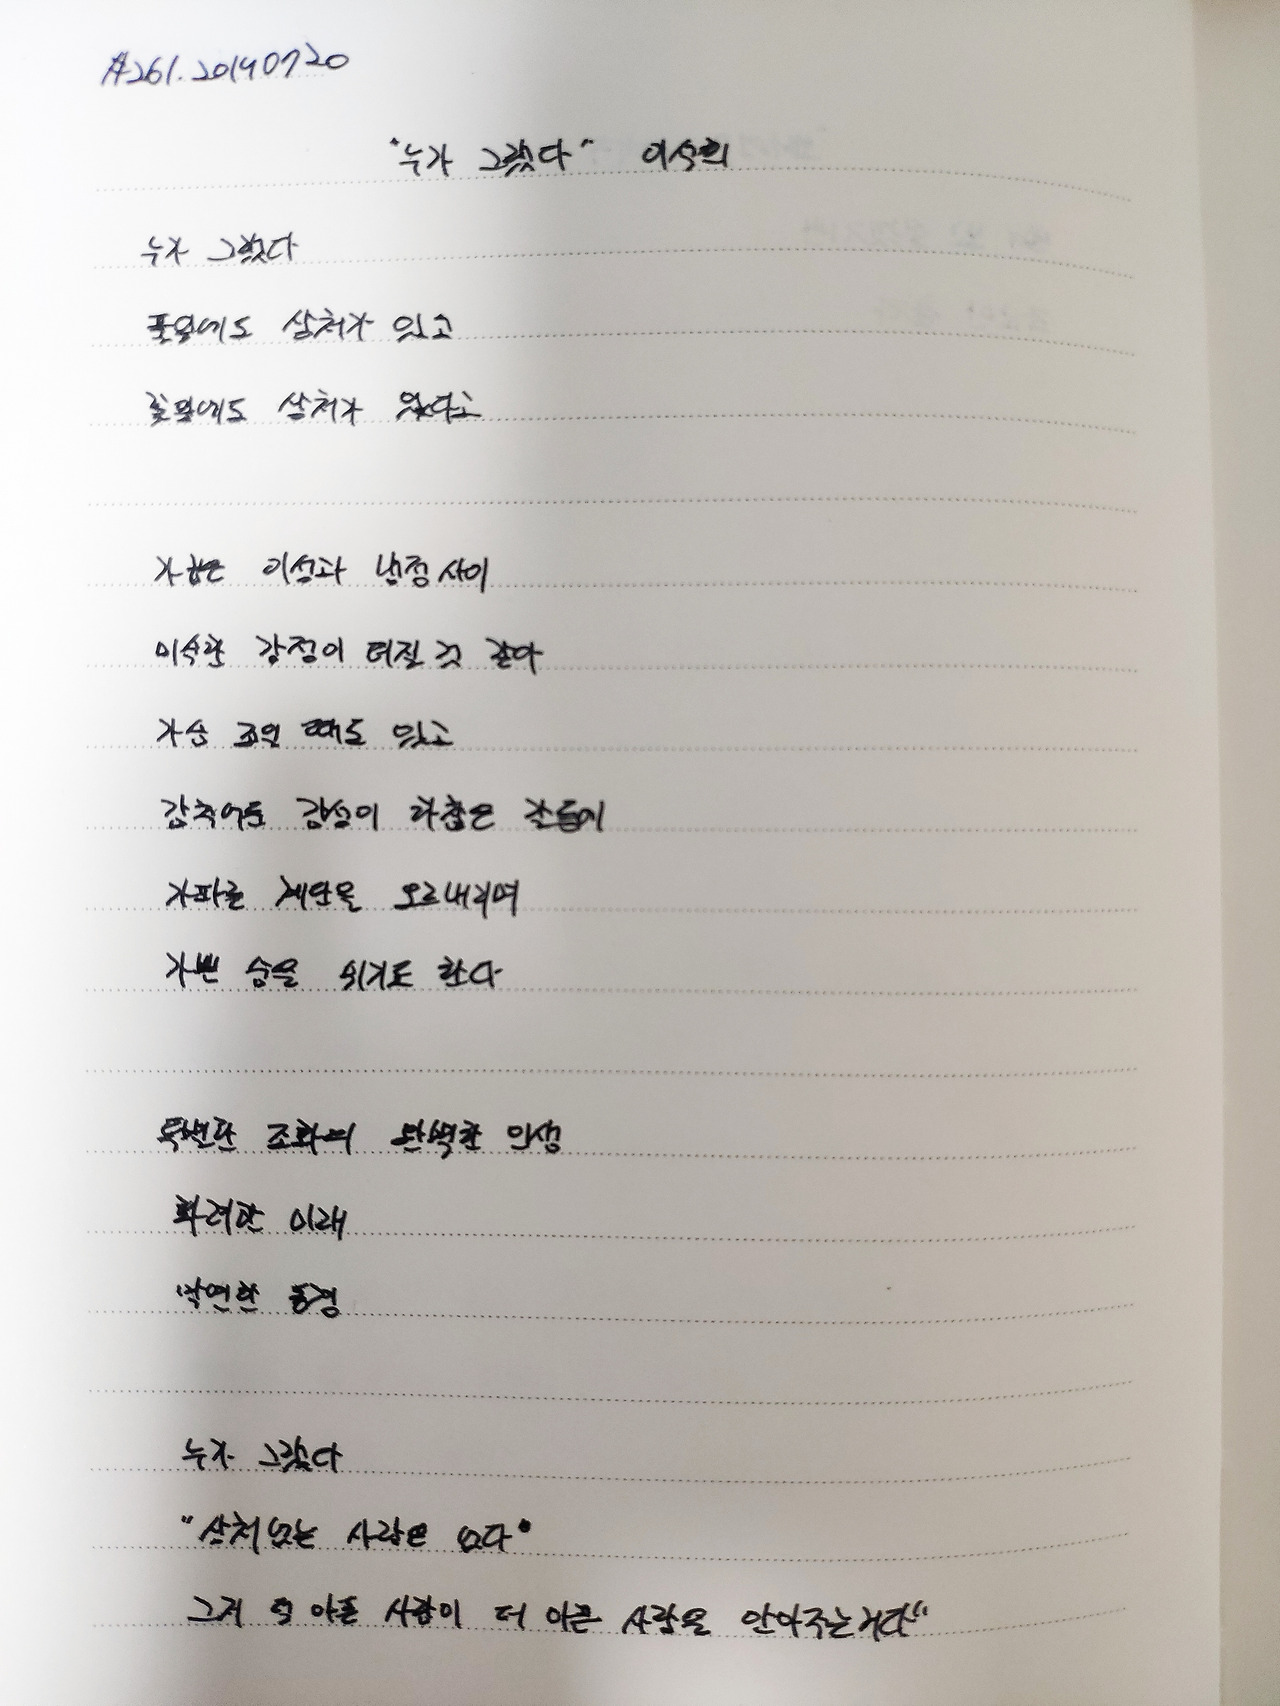 #261. 20190720
"누가 그랬다" 이석희
누가 그랬다
풀잎에도 상처가 있고
꽃잎에도 상처가 있다고
가끔은 이성과 냉정 사이
미숙한 감정이 터질 것 같아
가슴 조일 때도 있고
감추어둔 감성이 하찮은 갈등에
가파른 계단을 오르내리며
가쁜 숨을 쉬기도 한다
특별한 조화의 완벽한 인생
화려한 미래
막연한 동경
누가 그랬다
"상처없는 사람은 없다"
그저 덜 아픈 사람이 더 아픈 사람을 안아주는거다"